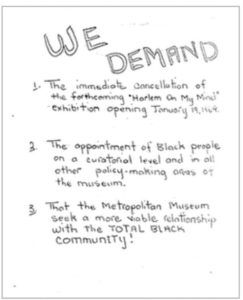 WE
DEMAND
1. The immediate cancellation of
the forthcoming "Harlem On My Mind"
exhibition opening January 19, 1969.
2. The appointment of Black people
on a curatorial level and in all
other policy-making areas of
the museum.
3. That the Metropolitan Museum
seek a more viable relationship
with the TOTAL BLACK
COMMUNITY!